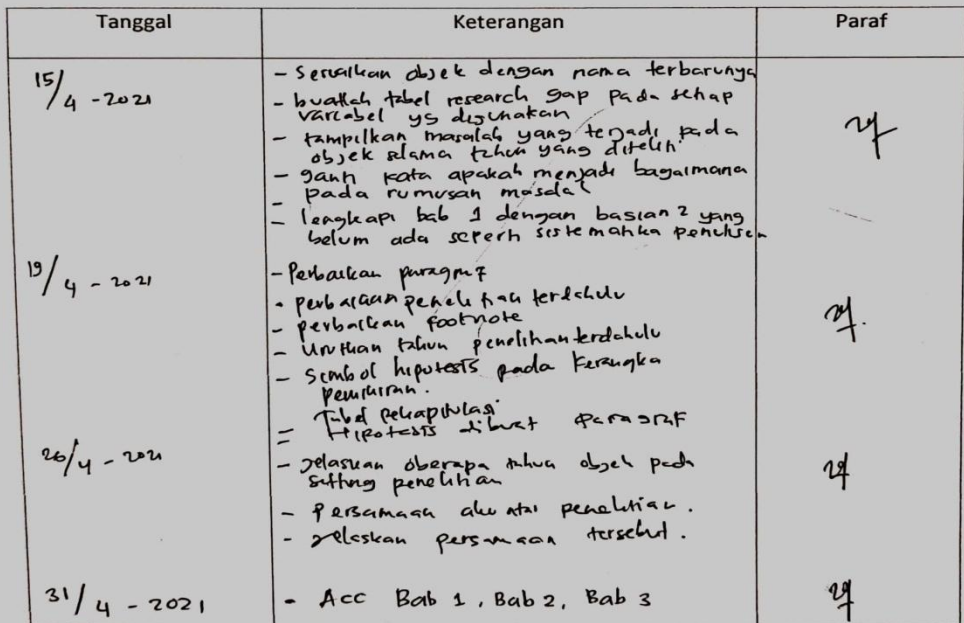 Tanggal Keterangan Paraf
15/4 - 2021
- Sesuaikan objek dengan nama terbarunya
- buatlah tabel research gap pada setiap
variabel yg digunakan
- tampilkan masalah yang terjadi pada
objek selama tahun yang diteliti
- ganti kata apakah menjadi bagaimana
- pada rumusan masalah
- lengkapi bab 1 dengan bagian2 yang
belum ada seperti sistematika penulisan
19/4 - 2021
- Perbaikan paragraf
- perbaikan penelitian terdahulu
- perbaikan footnote
- Urutkan tahun penelitian terdahulu
- Simbol hipotesis pada Kerangka
pemikiran.
- Tabel rekapitulasi
- Hipotesis dibuat paragraf
26/4 - 2021
- Jelaskan berapa tahun objek pada
setting penelitian
- Persamaan penelitian.
- Jelaskan persamaan tersebut.
31/4 - 2021
- Acc Bab 1, Bab 2, Bab 3